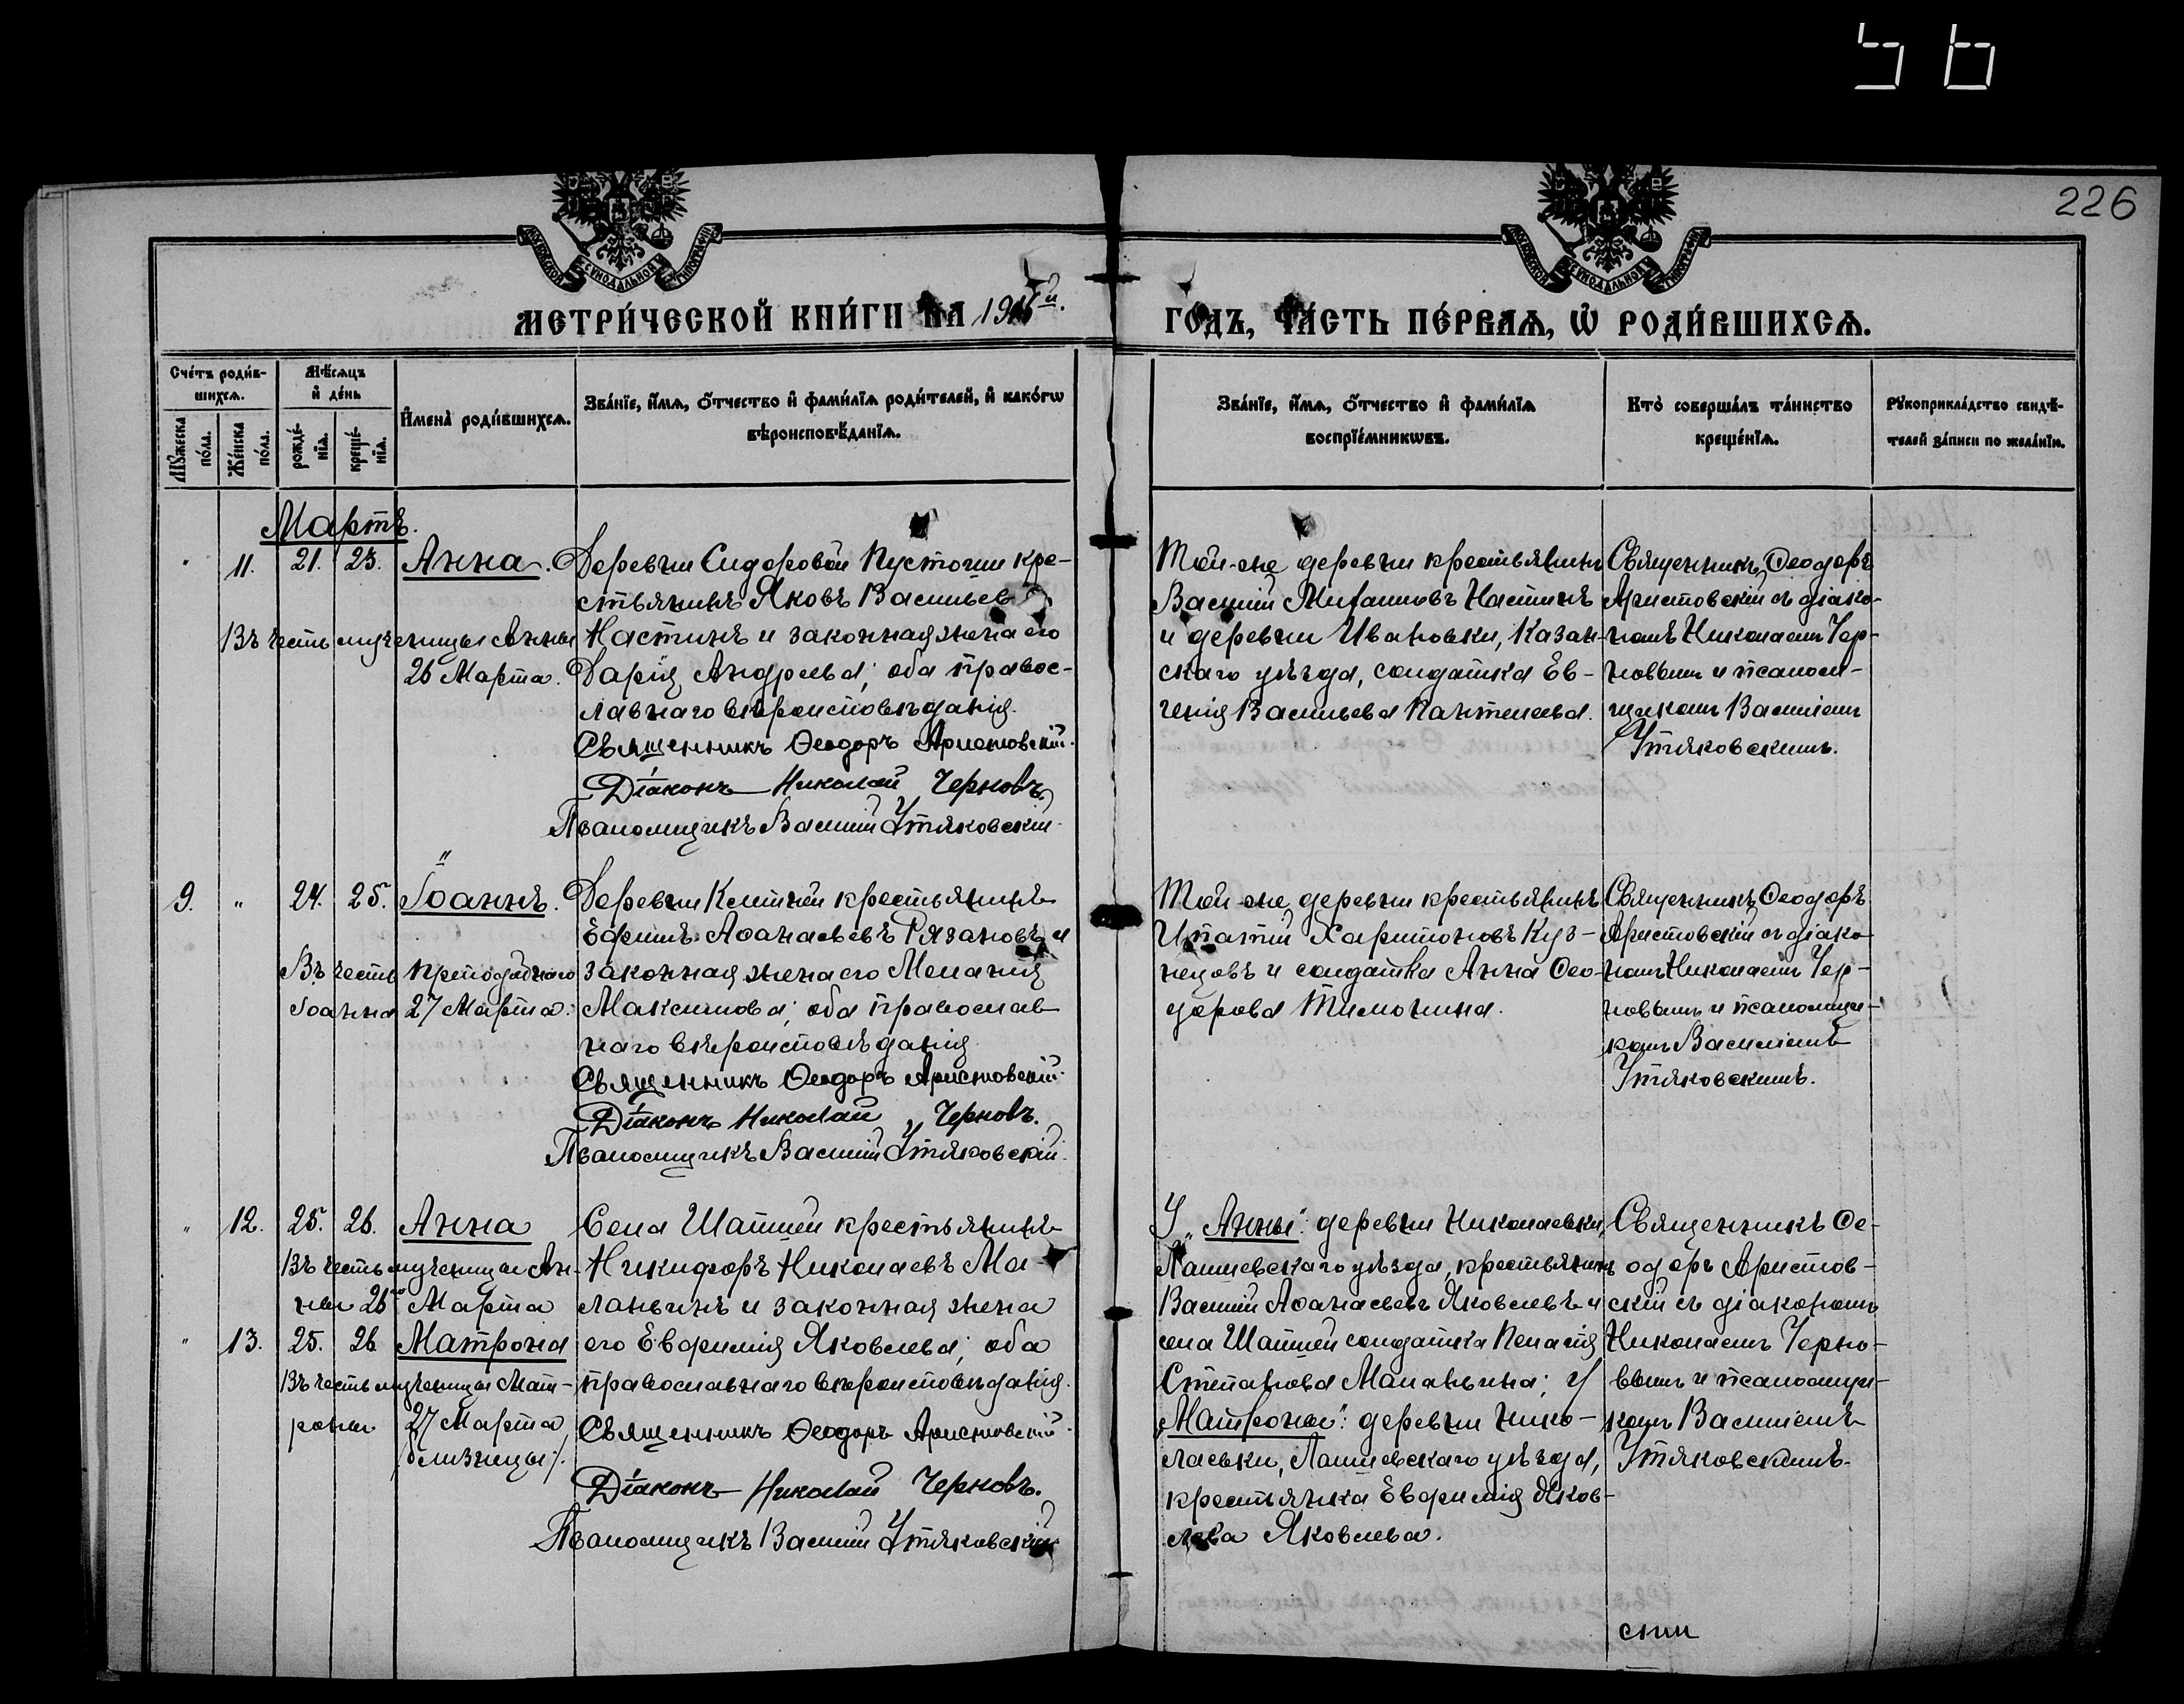 56
226
МОСКОВСКОЙ СУНОДАЛЬНОЙ ТИПОГРАФІИ
МОСКОВСКОЙ СУНОДАЛЬНОЙ ТИПОГРАФІИ
МЕТРИ́ЧЕСКОЙ КНИ́ГИ НА 1916й.
ГО́ДЪ, ЧА́СТЬ ПЕ́РВАѦ, Ѡ҆ РОДИ́ВШИХСѦ.
Сче́тъ роди́в-
шихсѧ.
Мѣ́сѧцъ
и҆ де́нь
Мꙋ́жеска
по́ла.
Же́нска
по́ла.
рожде́-
нїѧ.
креще́-
нїѧ.
И҆мена̀ роди́вшихсѧ.
Зва́нїе, и҆́мѧ, ѻ҆́тчество и҆ фами́лїѧ роди́телей, и҆ како́гѡ
вѣроисповѣ́данїѧ.
Зва́нїе, и҆́мѧ, ѻ҆́тчество и҆ фами́лїѧ
воспрїе́мникѡвъ.
Кто̀ соверша́лъ та́инство
креще́нїѧ.
Рꙋкоприкла́дство свидѣ́-
телей за́писи по жела́нїю.
Мартъ.
" 11. 21. 23. Анна.
Въ честь мученицы Анны
26 Марта.
Деревни Сидоровой Пустоши кре-
стьянинъ Яковъ Васильевъ
Настинъ и законная жена его
Дарія Андреева; оба правос-
лавнаго вѣроисповѣданія.
Священникъ Ѳеодоръ Аристовскій.
Діаконъ Николай Черновъ.
Псаломщикъ Василій Утяковскій.
Той-же деревни крестьянинъ
Василій Настинъ
и деревни Ивановки, Казан-
скаго уѣзда, солдатка Ев-
генія Васильева Пантелеева.
Священникъ Ѳеодоръ
Аристовскій съ діако-
номъ Николаемъ Чер-
новымъ и псалом-
щикомъ Василіемъ
Утяковскимъ.
9. " 24. 25. Іоаннъ.
Въ честь преподобнаго
Іоанна 27 Марта.
Деревни крестьянинъ
Ефимъ Аѳанасьевъ Рязановъ и
законная жена его Меланія
Максимова; оба православ-
наго вѣроисповѣданія
Священникъ Ѳеодоръ Аристовскій.
Діаконъ Николай Черновъ.
Псаломщикъ Василій Утяковскій.
Той-же деревни крестьянинъ
Ипатій Харитоновъ Куз-
нецовъ и солдатка Анна Ѳео-
дорова Тимохина.
Священникъ Ѳеодоръ
Аристовскій съ діако-
номъ Николаемъ Чер-
новымъ и псаломщи-
комъ Василіемъ
Утяковскимъ.
" 12. 25. 26. Анна
Въ честь мученицы Ан-
ны 26го Марта
" 13. 25. 26 Матрона
Въ честь мученицы Мат-
роны 27 Марта
/близнецы/.
Села Шапшей крестьянинъ
Никифоръ Николаевъ Ма-
ланьинъ и законная жена
его Евфимія Яковлева; оба
православнаго вѣроисповѣданія.
Священникъ Ѳеодоръ Аристовскій.
Діаконъ Николай Черновъ.
Псаломщикъ Василій Утяковскій
У „Анны": деревни Николаевки,
Лаишевскаго уѣзда, крестьянинъ
Василій Аѳанасьевъ Яковлевъ и
села Шапшей солдатка Пелагія
Степанова Маланьина; У
„Матроны": деревни Нико-
лаевки, Лаишевскаго уѣзда,
крестьянка Евфимія Яков-
лева Яковлева.
Священникъ Ѳе-
одоръ Аристов-
скій съ діакономъ
Николаемъ Черно-
вымъ и псаломщи-
комъ Василіемъ
Утяковскимъ.